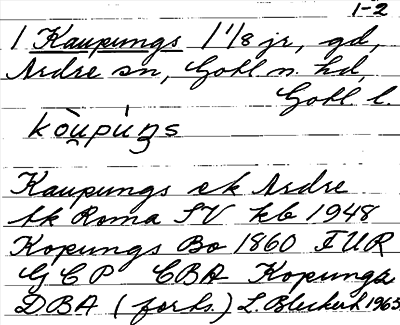 1-2
1 Kaupungs 1 1/8 jr, gd,
Ardre sn, Gotl. n. hd,
Gotl l.
kòu̯púŋs
Kaupungs ek Ardre
bk Roma SV kb 1948
Kopungs Bo 1860 FUR
GCP CBA Kopungs
DBA (forts.) L. 1965